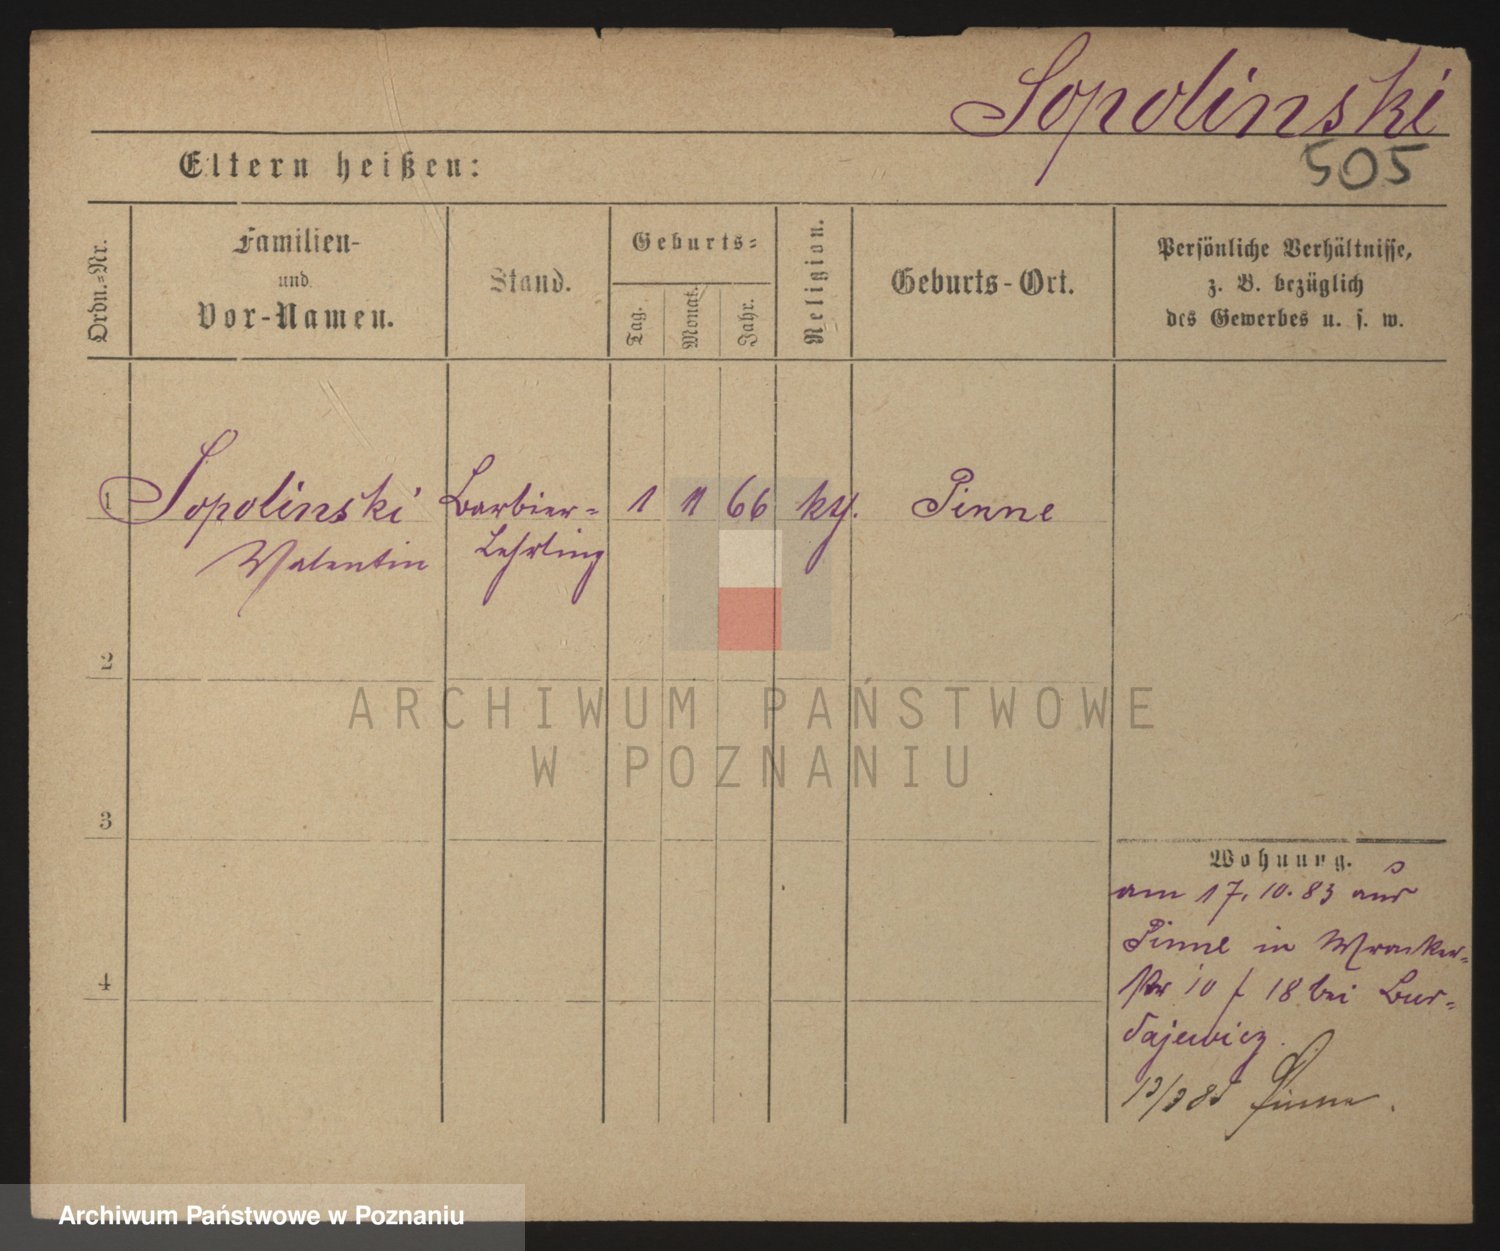 Sopolinski
505
Eltern heißen:
Ordn.-Nr.
Familien-
und
Vor-Namen.
Stand.
Geburts-
Tag.
Monat.
Jahr.
Religion.
Geburts-Ort.
Persönliche Verhältnisse,
z. B. bezüglich
des Gewerbes u. s. w.
1 Sopolinski Barbier- 1 11 66 Pinne
Valentin Lehrling
2
3
4
Wohnung.
am 17. 10. 83 aus
Pinne in Wronker-
10 18 bei Bur-
dajewicz.
Pinne.
ARCHIWUM PAŃSTWOWE
W POZNANIU
Archiwum Państwowe w Poznaniu